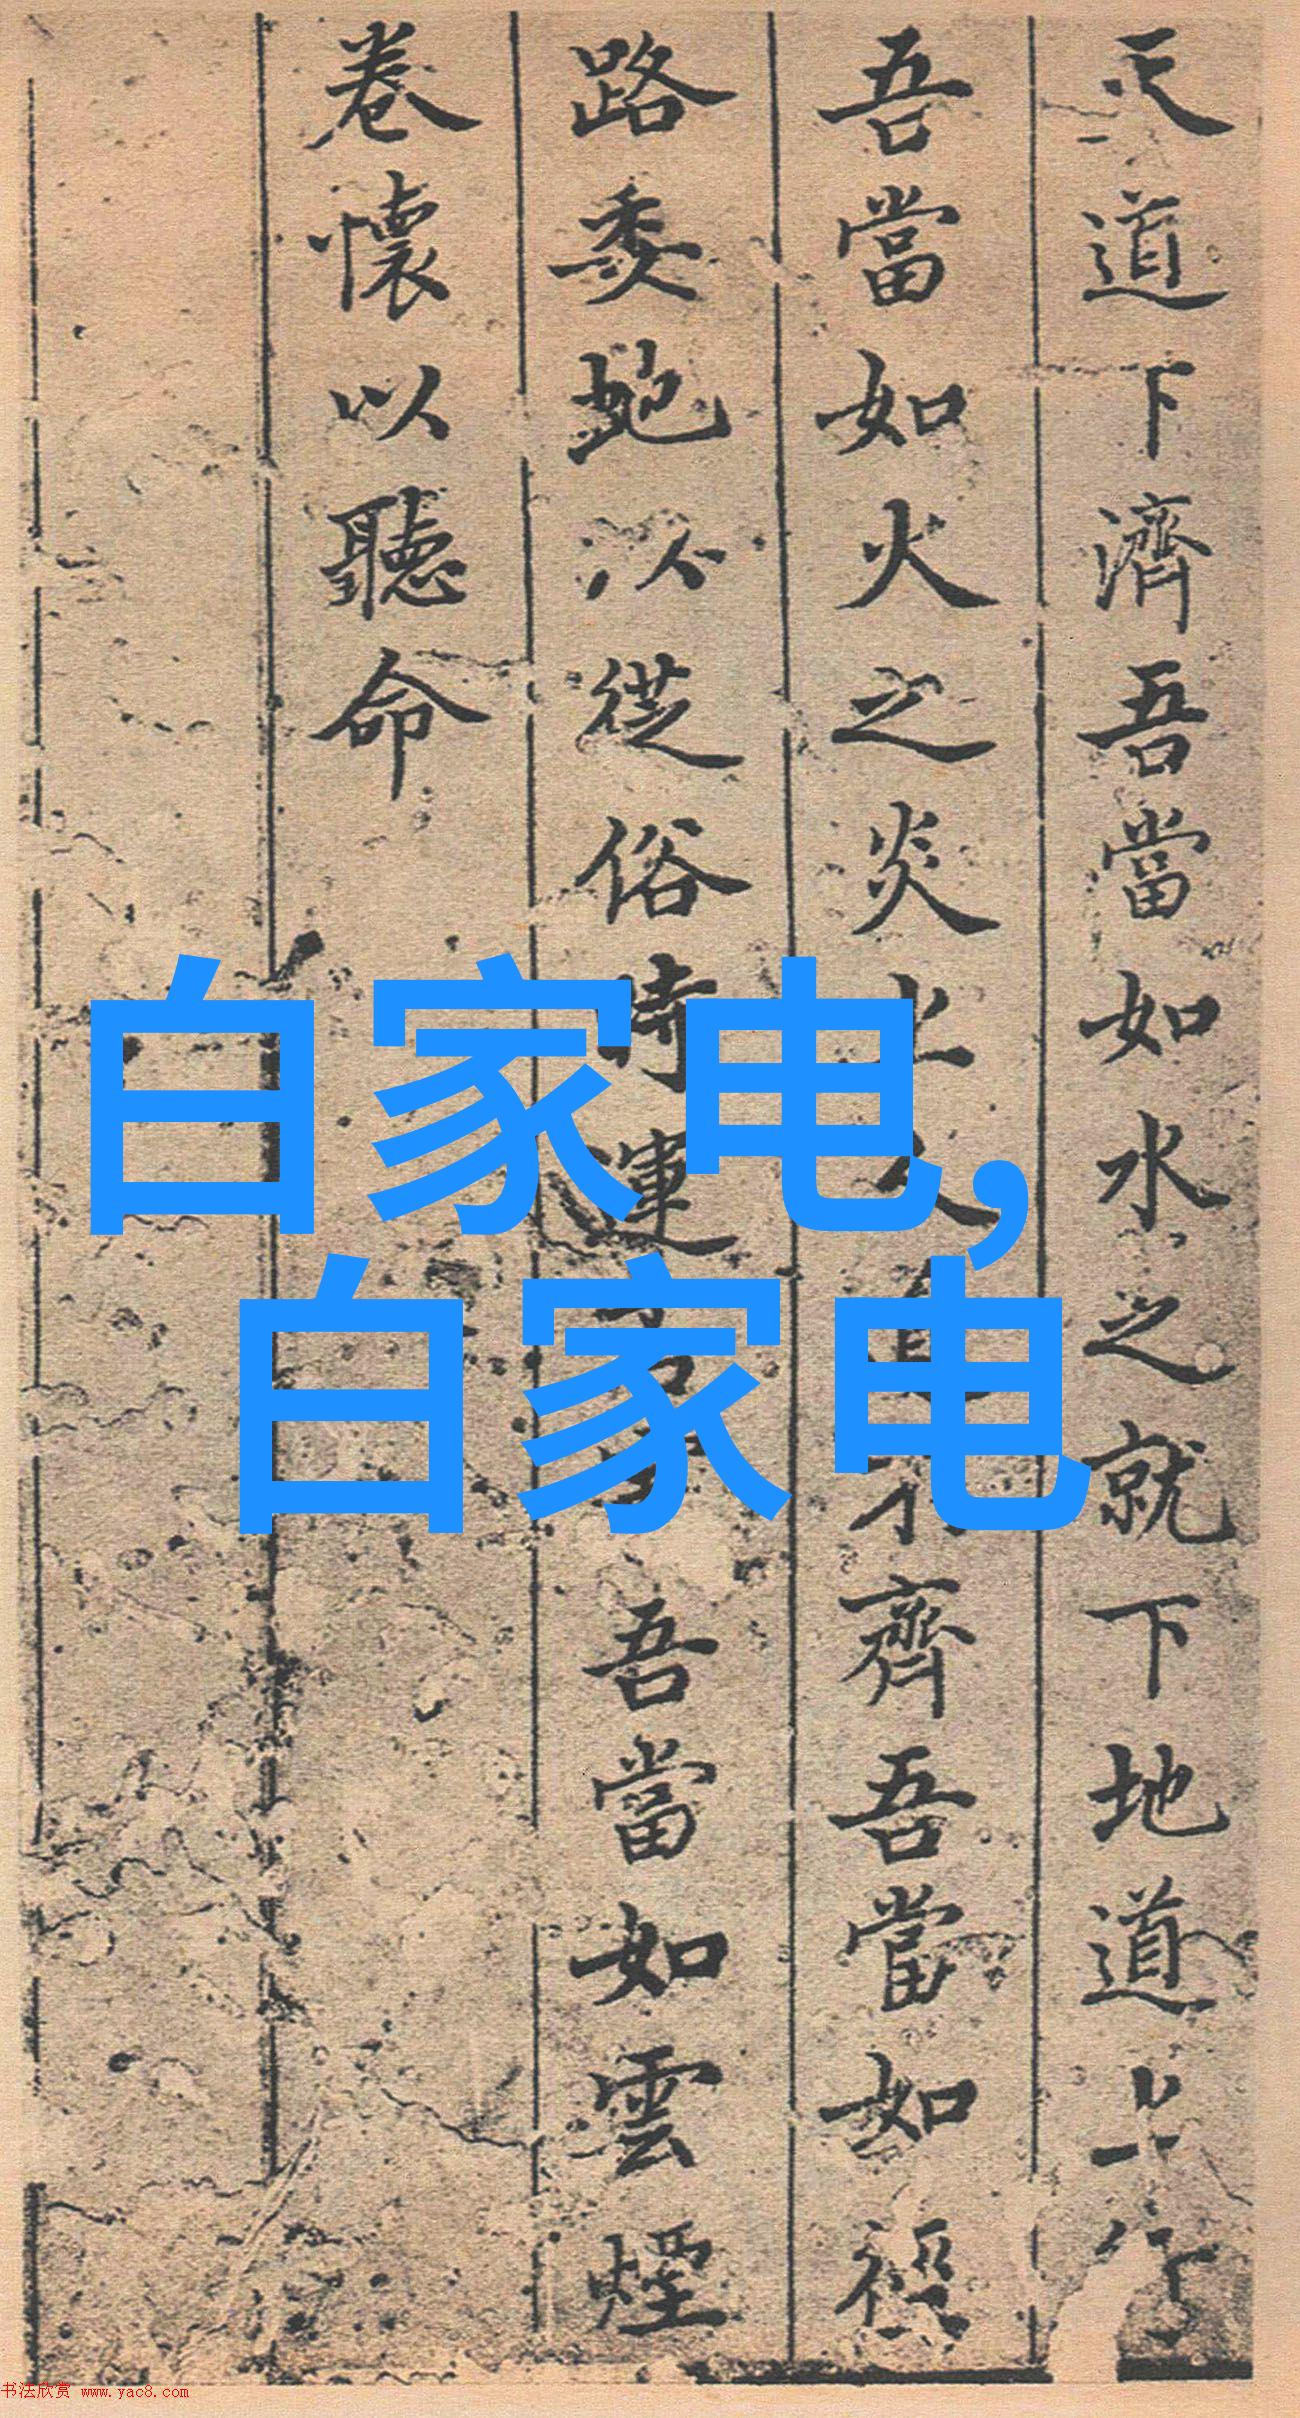 天道下濟吾當如水之就下地道上行
吾當如火之炎上人齊吾當如徑
路委蛇以從俗時運吾當如雲煙
卷懷以聽命
白家电,
白家电
书法欣赏 www.yac8.com